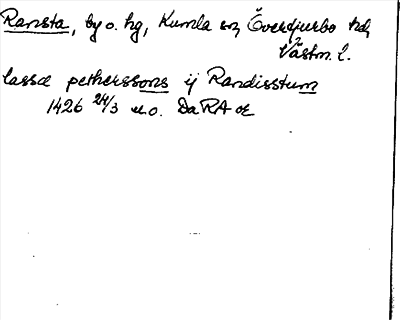 Ransta, by o. hg, Kumla sn, Överdjurbo hd,
Västm. l.
lassæ pethersson͟s ij Randisstum
1426 24/3 u.o. DaRA or